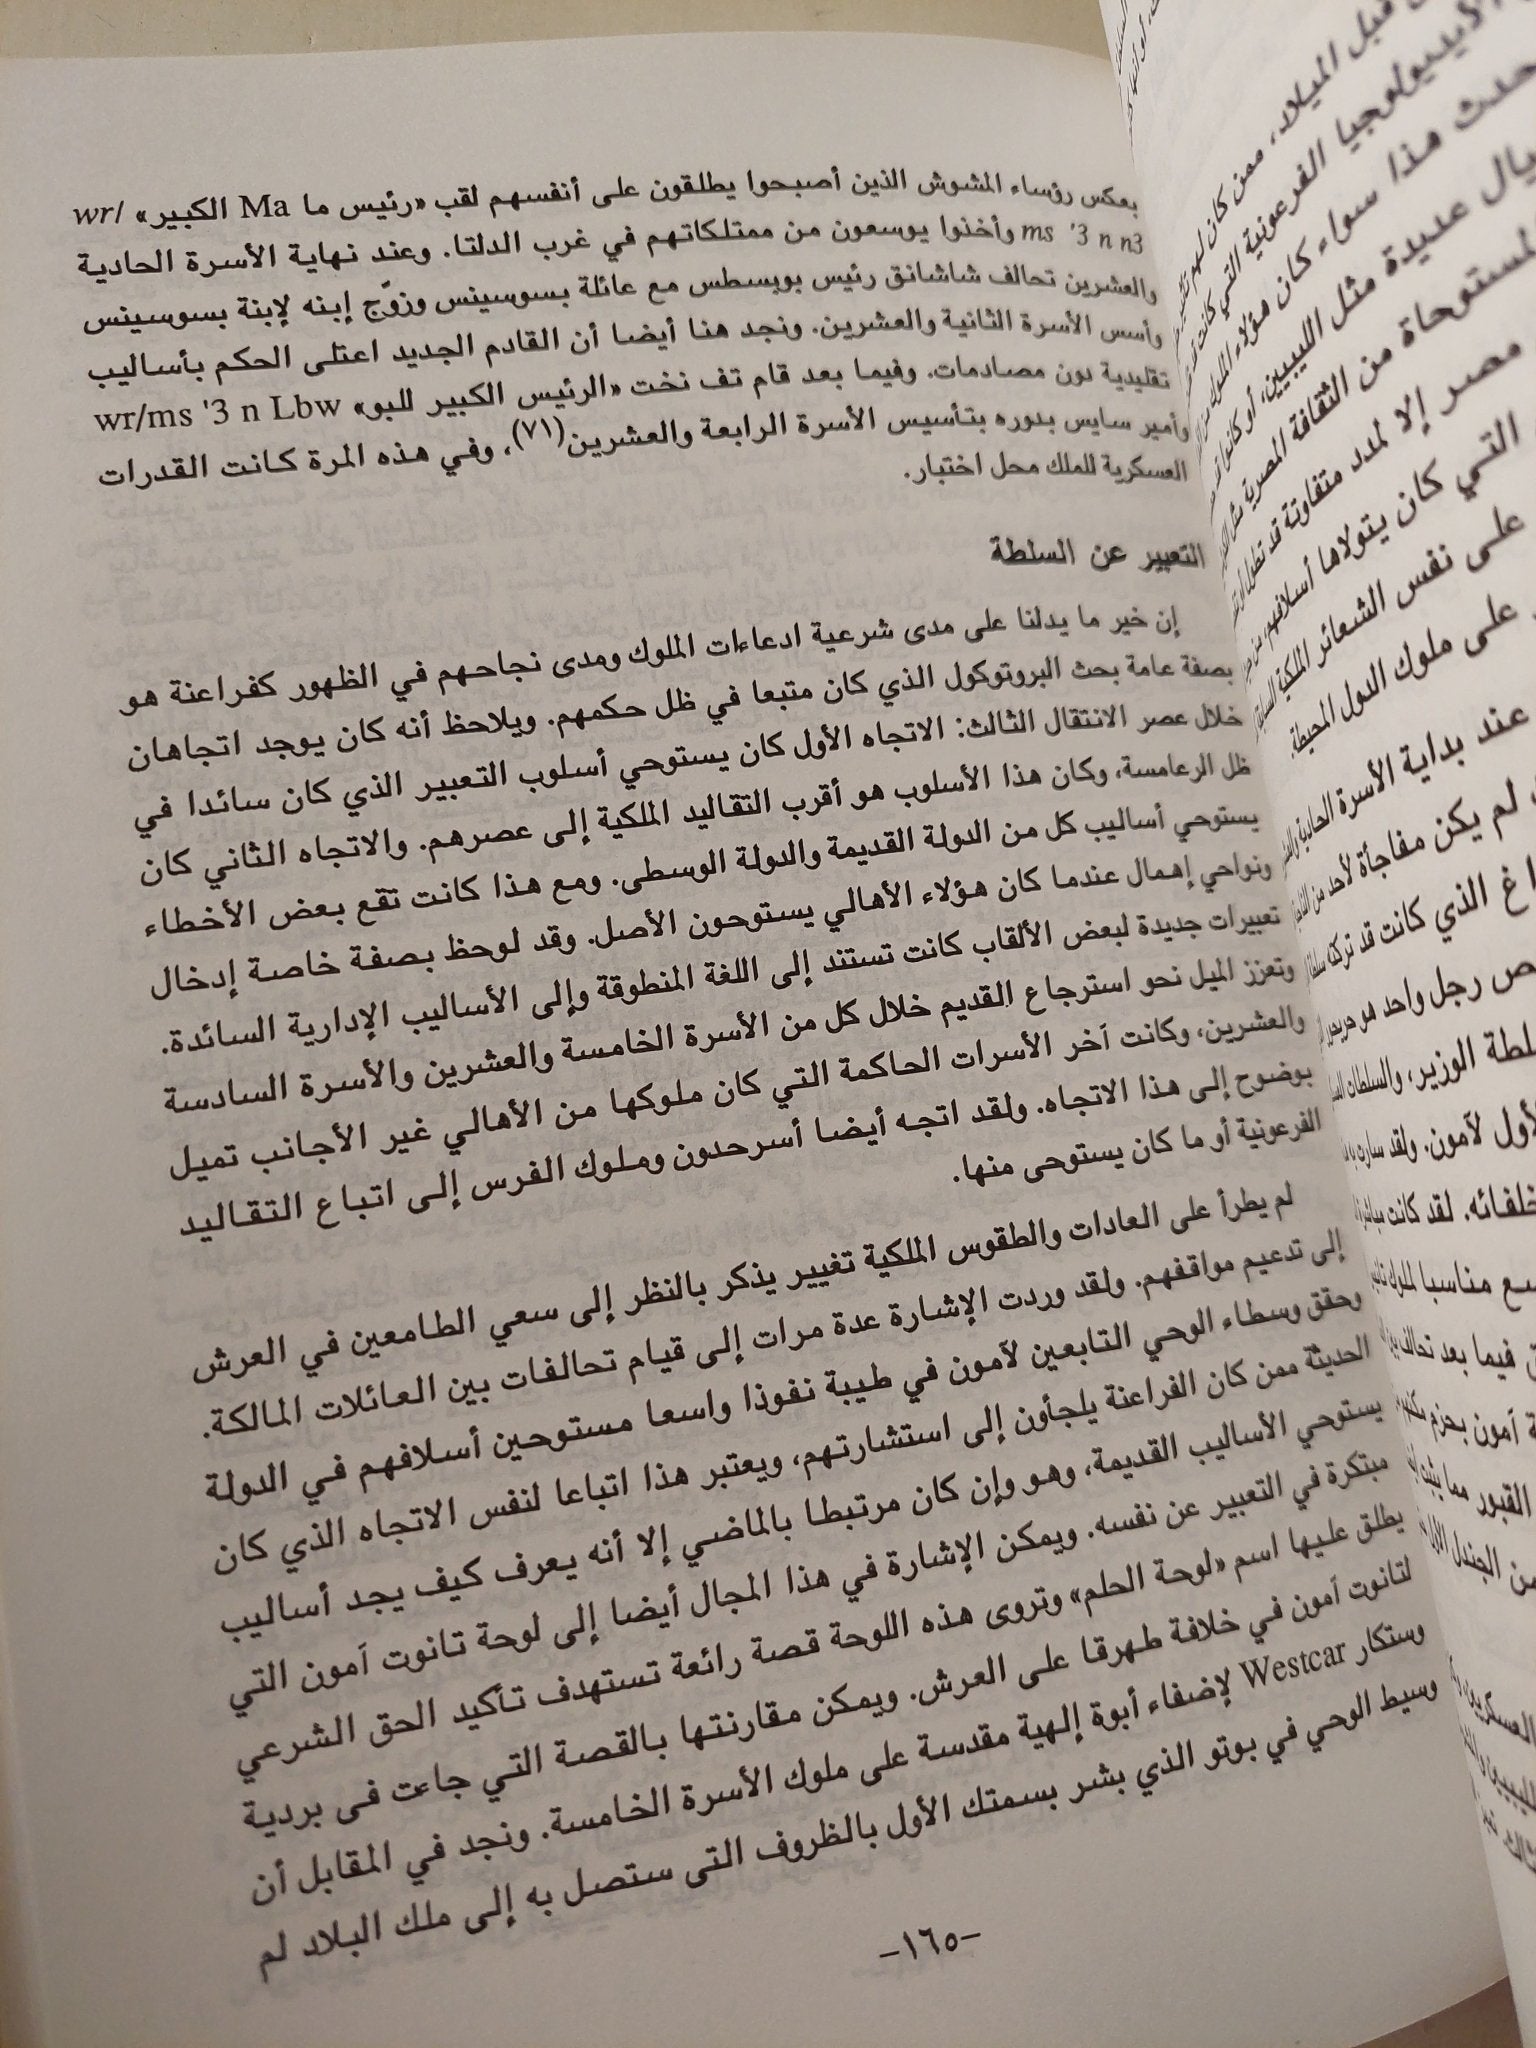 بعكس رؤساء المشوش الذين أصبحوا يطلقون على أنفسهم لقب «رئيس ما Ma الكبير» wr/
ms '3 n n3 وأخذوا يوسعون من ممتلكاتهم في غرب الدلتا. وعند نهاية الأسرة الحادية
والعشرين تحالف شاشانق رئيس بوبسطس مع عائلة بسوسينس وزوّج إبنه لإبنة بسوسينس
وأسس الأسرة الثانية والعشرين. ونجد هنا أيضا أن القادم الجديد اعتلى الحكم بأساليب
تقليدية دون مصادمات. وفيما بعد قام تف نخت «الرئيس الكبير للبو» wr/ms '3 n Lbw
وأمير سايس بدوره بتأسيس الأسرة الرابعة والعشرين(٧١)، وفي هذه المرة كانت القدرات
العسكرية للملك محل اختبار.
التعبير عن السلطة
إن خير ما يدلنا على مدى شرعية ادعاءات الملوك ومدى نجاحهم في الظهور كفراعنة هو
بصفة عامة بحث البروتوكول الذي كان متبعا في ظل حكمهم. ويلاحظ أنه كان يوجد اتجاهان
خلال عصر الانتقال الثالث: الاتجاه الأول كان يستوحي أسلوب التعبير الذي كان سائدا في
ظل الرعامسة، وكان هذا الأسلوب هو أقرب التقاليد الملكية إلى عصرهم. والاتجاه الثاني كان
يستوحي أساليب كل من الدولة القديمة والدولة الوسطى. ومع هذا كانت تقع بعض الأخطاء
ونواحي إهمال عندما كان هؤلاء الأهالي يستوحون الأصل. وقد لوحظ بصفة خاصة إدخال
تعبيرات جديدة لبعض الألقاب كانت تستند إلى اللغة المنطوقة وإلى الأساليب الإدارية السائدة.
وتعزز الميل نحو استرجاع القديم خلال كل من الأسرة الخامسة والعشرين والأسرة السادسة
والعشرين، وكانت آخر الأسرات الحاكمة التي كان ملوكها من الأهالي غير الأجانب تميل
بوضوح إلى هذا الاتجاه. ولقد اتجه أيضا أسرحدون وملوك الفرس إلى اتباع التقاليد
الفرعونية أو ما كان يستوحى منها.
لم يطرأ على العادات والطقوس الملكية تغيير يذكر بالنظر إلى سعي الطامعين في العرش
إلى تدعيم مواقفهم. ولقد وردت الإشارة عدة مرات إلى قيام تحالفات بين العائلات المالكة.
وحقق وسطاء الوحي التابعين لآمون في طيبة نفوذا واسعا مستوحين أسلافهم في الدولة
الحديثة ممن كان الفراعنة يلجأون إلى استشارتهم، ويعتبر هذا اتباعا لنفس الاتجاه الذي كان
يستوحي الأساليب القديمة، وهو وإن كان مرتبطا بالماضي إلا أنه يعرف كيف يجد أساليب
مبتكرة في التعبير عن نفسه. ويمكن الإشارة في هذا المجال أيضا إلى لوحة تانوت آمون التي
يطلق عليها اسم «لوحة الحلم» وتروى هذه اللوحة قصة رائعة تستهدف تأكيد الحق الشرعي
لتانوت آمون في خلافة طهرقا على العرش. ويمكن مقارنتها بالقصة التي جاءت فى بردية
وستكار Westcar لإضفاء أبوة إلهية مقدسة على ملوك الأسرة الخامسة. ونجد في المقابل أن
وسيط الوحي في بوتو الذي بشر بسمتك الأول بالظروف التى ستصل به إلى ملك البلاد لم
-١٦٥-
قبل الميلاد، ممن كان لهم
الأيديولوجيا الفرعونية التي كانت
حدث هذا سواء كان هؤلاء الملوك
عديدة مثل الليبيين، أو كانوا
المستوحاة من الثقافة المصرية
مصر إلا لمدد متفاوتة قد تطول أو
التي كان يتولاها أسلافهم، من
على نفس الشعائر الملكية
على ملوك الدول المحيطة.
عند بداية الأسرة الحادية
لم يكن مفاجأة لأحد من
الذي كانت قد تركته
رجل واحد هو حريحور
الوزير، والسلطان
لآمون. ولقد سار
خلفائه. لقد كانت
مناسبا لملوك
فيما بعد تحالف
آمون بحزم
القبور مما يثبت
من الجندل الأول